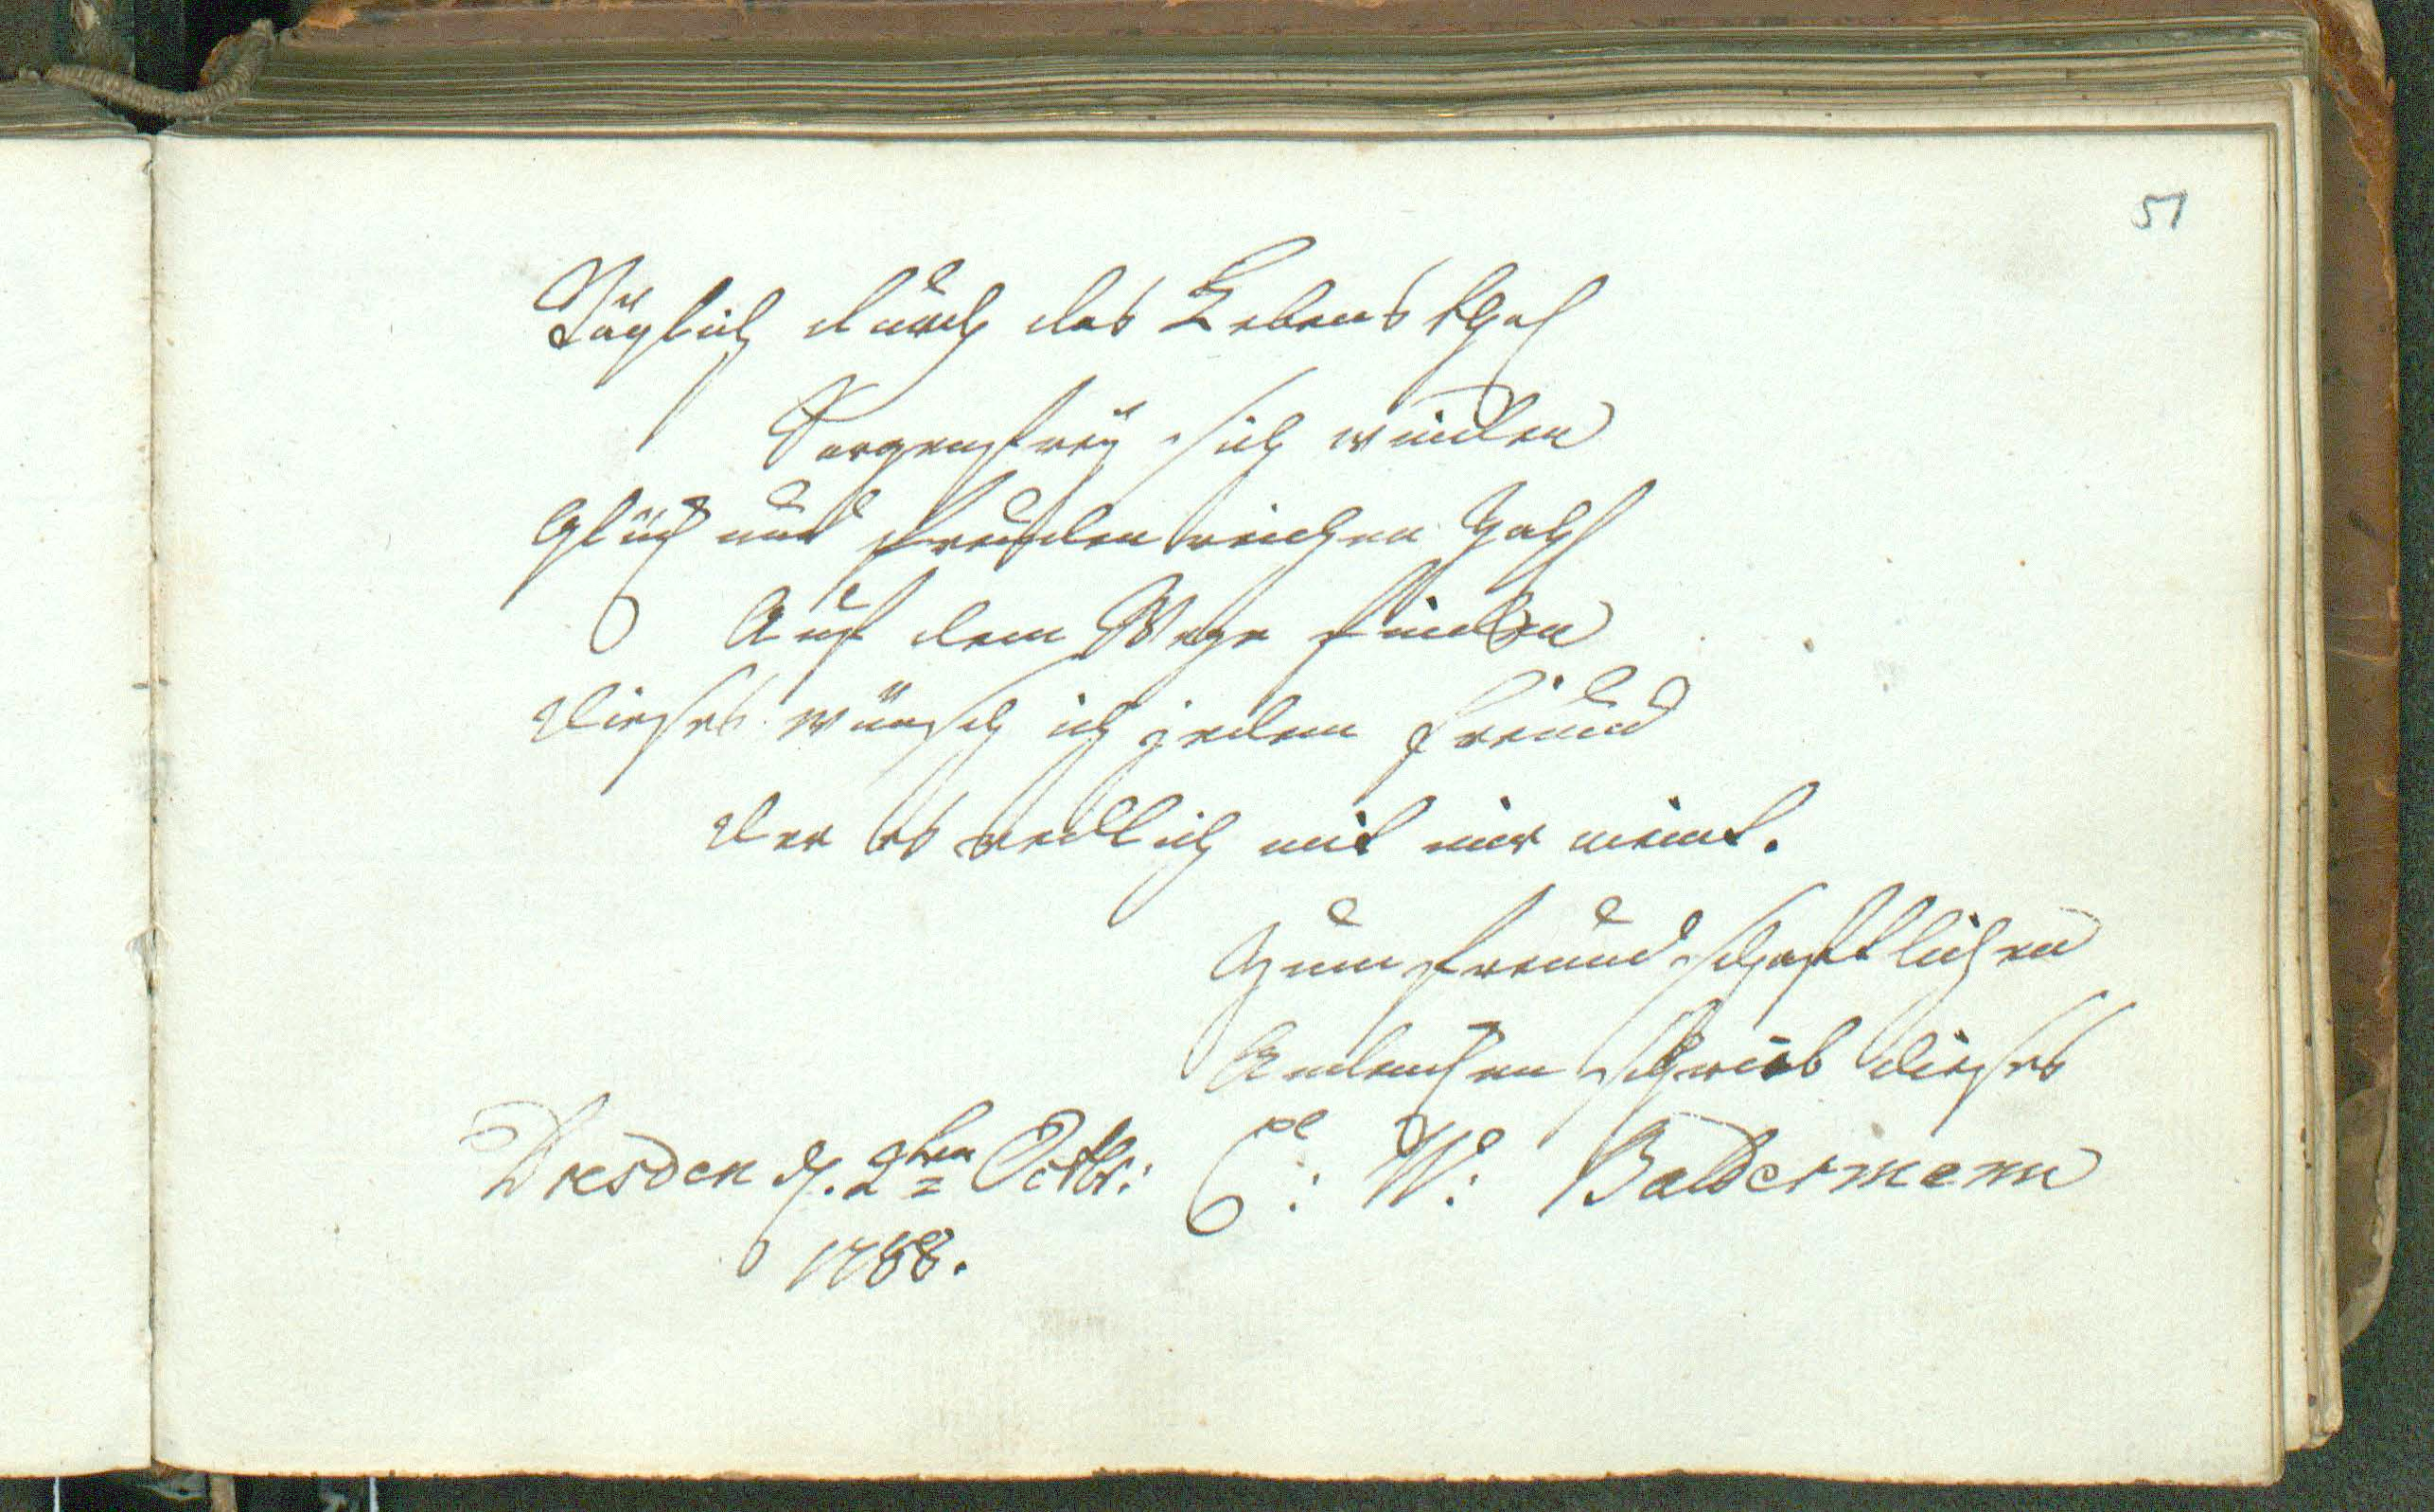 51
Täglich durch das Lebens thal
Sorgenfreÿ sich winden
Glück und freuden reichen Zahl
Auf dem Wege finden
dieses wünsch ich jedem Freund
der es redlich mit mir meint.
Zum freundschaftlichen
Andencken schrieb dieses
Dresden d. 2ten Octbr: C: W: Baldermann
1788.